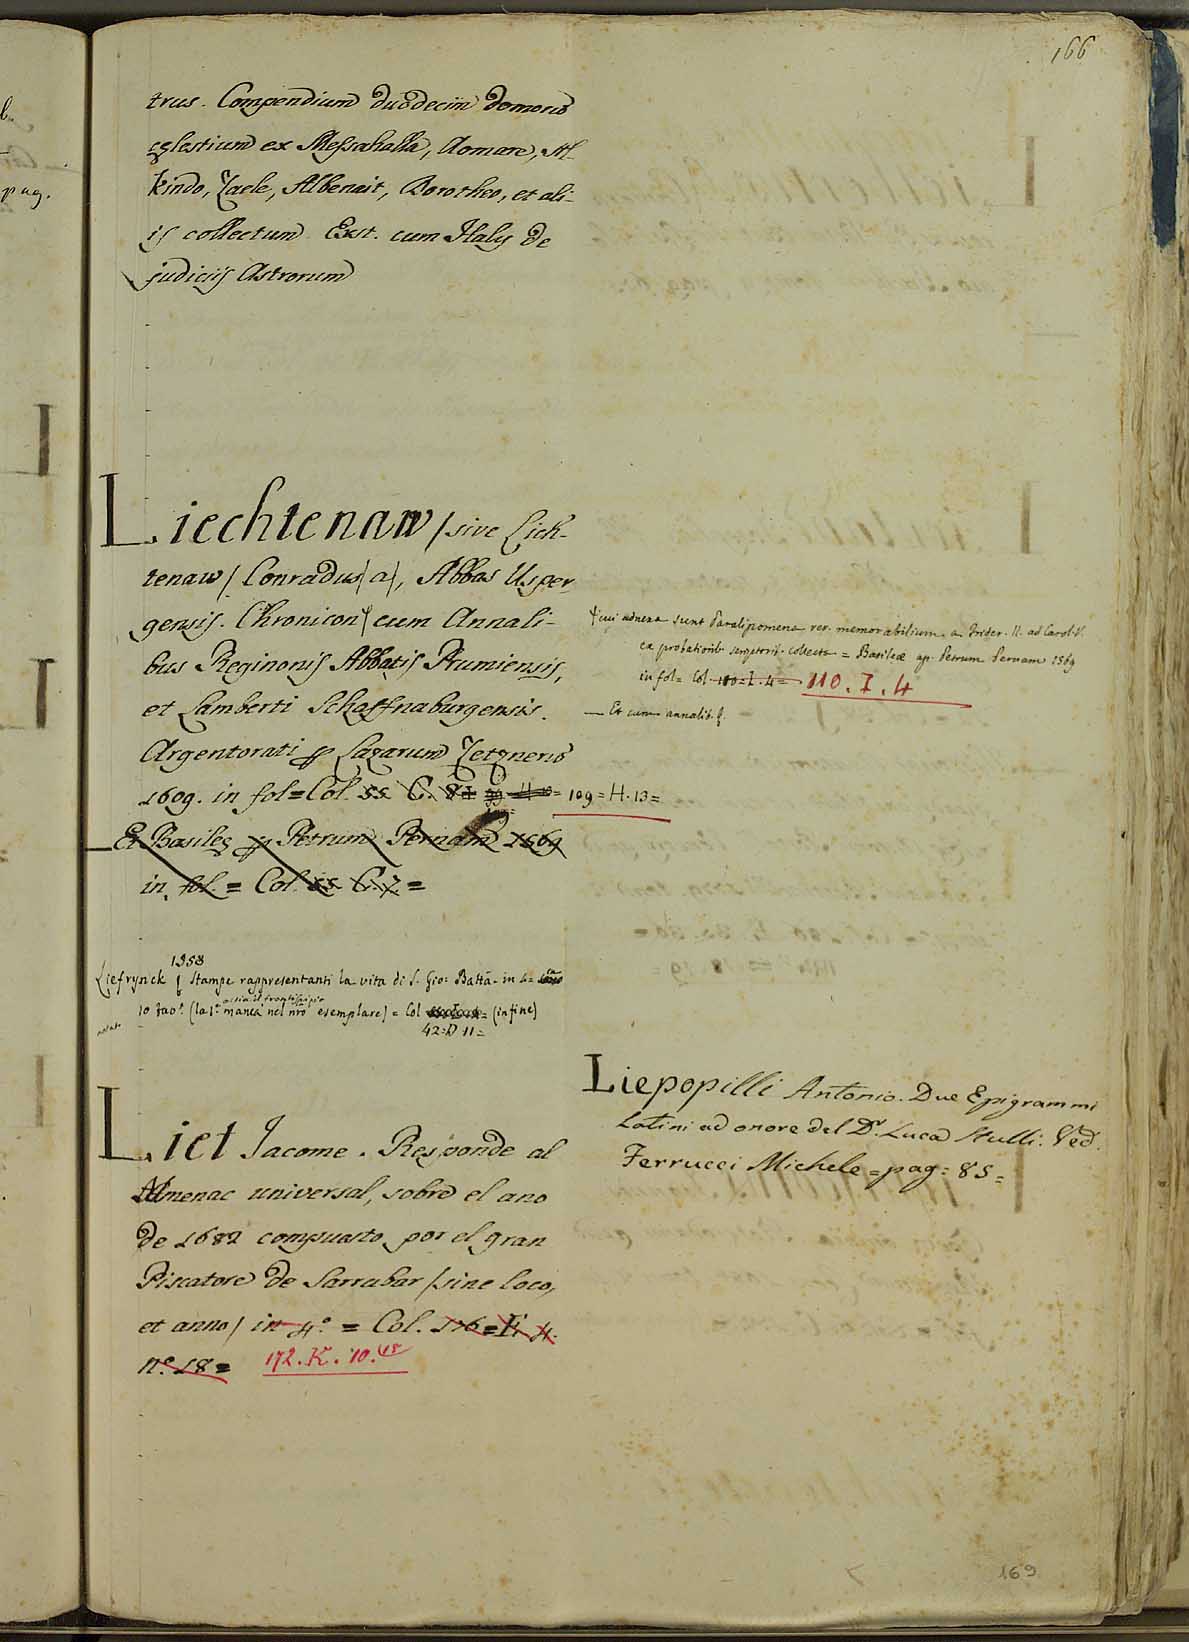 166
trus. Compendium duodecim domorũ
cęlestium ex Messahalla, Aomare, Al-
kindo, Zaele, Albenait, Dorotheo, et ali-
is collectum. Exst. cum Haly de
judiciis Astrorum
Liechtenaw /sive Lich-
tenaw/ Conradus (a), Abbas Usper-
gensis. Chronicon cum Annali-
bus Reginonis Abbatis Prumiensis,
et Lamberti Schaffnaburgensis.
Argentorati p Lazarum Zetznerũ
1609. in fol = Col. 55. C. = 109 = H. 13 =
Et Basileę p Petrum Pernam 1569
in fol. = Col. 55. C. 7. =
cui adnexa sunt Paralipomena rer. memorabilium a Frider. II. ad Carol. V.
ex probatiorib. scriptorib. collecta = Basileæ ap. Petrum Pernam 1569
in fol = Col. 110 = I. 4 = 110. I. 4
— Et cum annalib. &.
1353
Liefrynck | Stampe rappresentanti la vita di S. Gio: Battã. in 4 =
ossia il frontispizio
10 Tao. (la 1ª manca nel nrõ esemplare) = Col (in fine)
42: D 11 =
Liet Jacome. Responde al
Almenac universal, sobre el ano
de 1682 compuasto por el gran
Piscatore de Sarrabar /sine loco,
et anno/ in 4.º = Col. 176 = F. 4.
n.º 18 = 172. K. 10. 18
Liepopilli Antonio. Due Epigrammi
Latini ad onore del Dr. Luca Stulli. Ved.
Ferrucci Michele = pag: 85 =
169